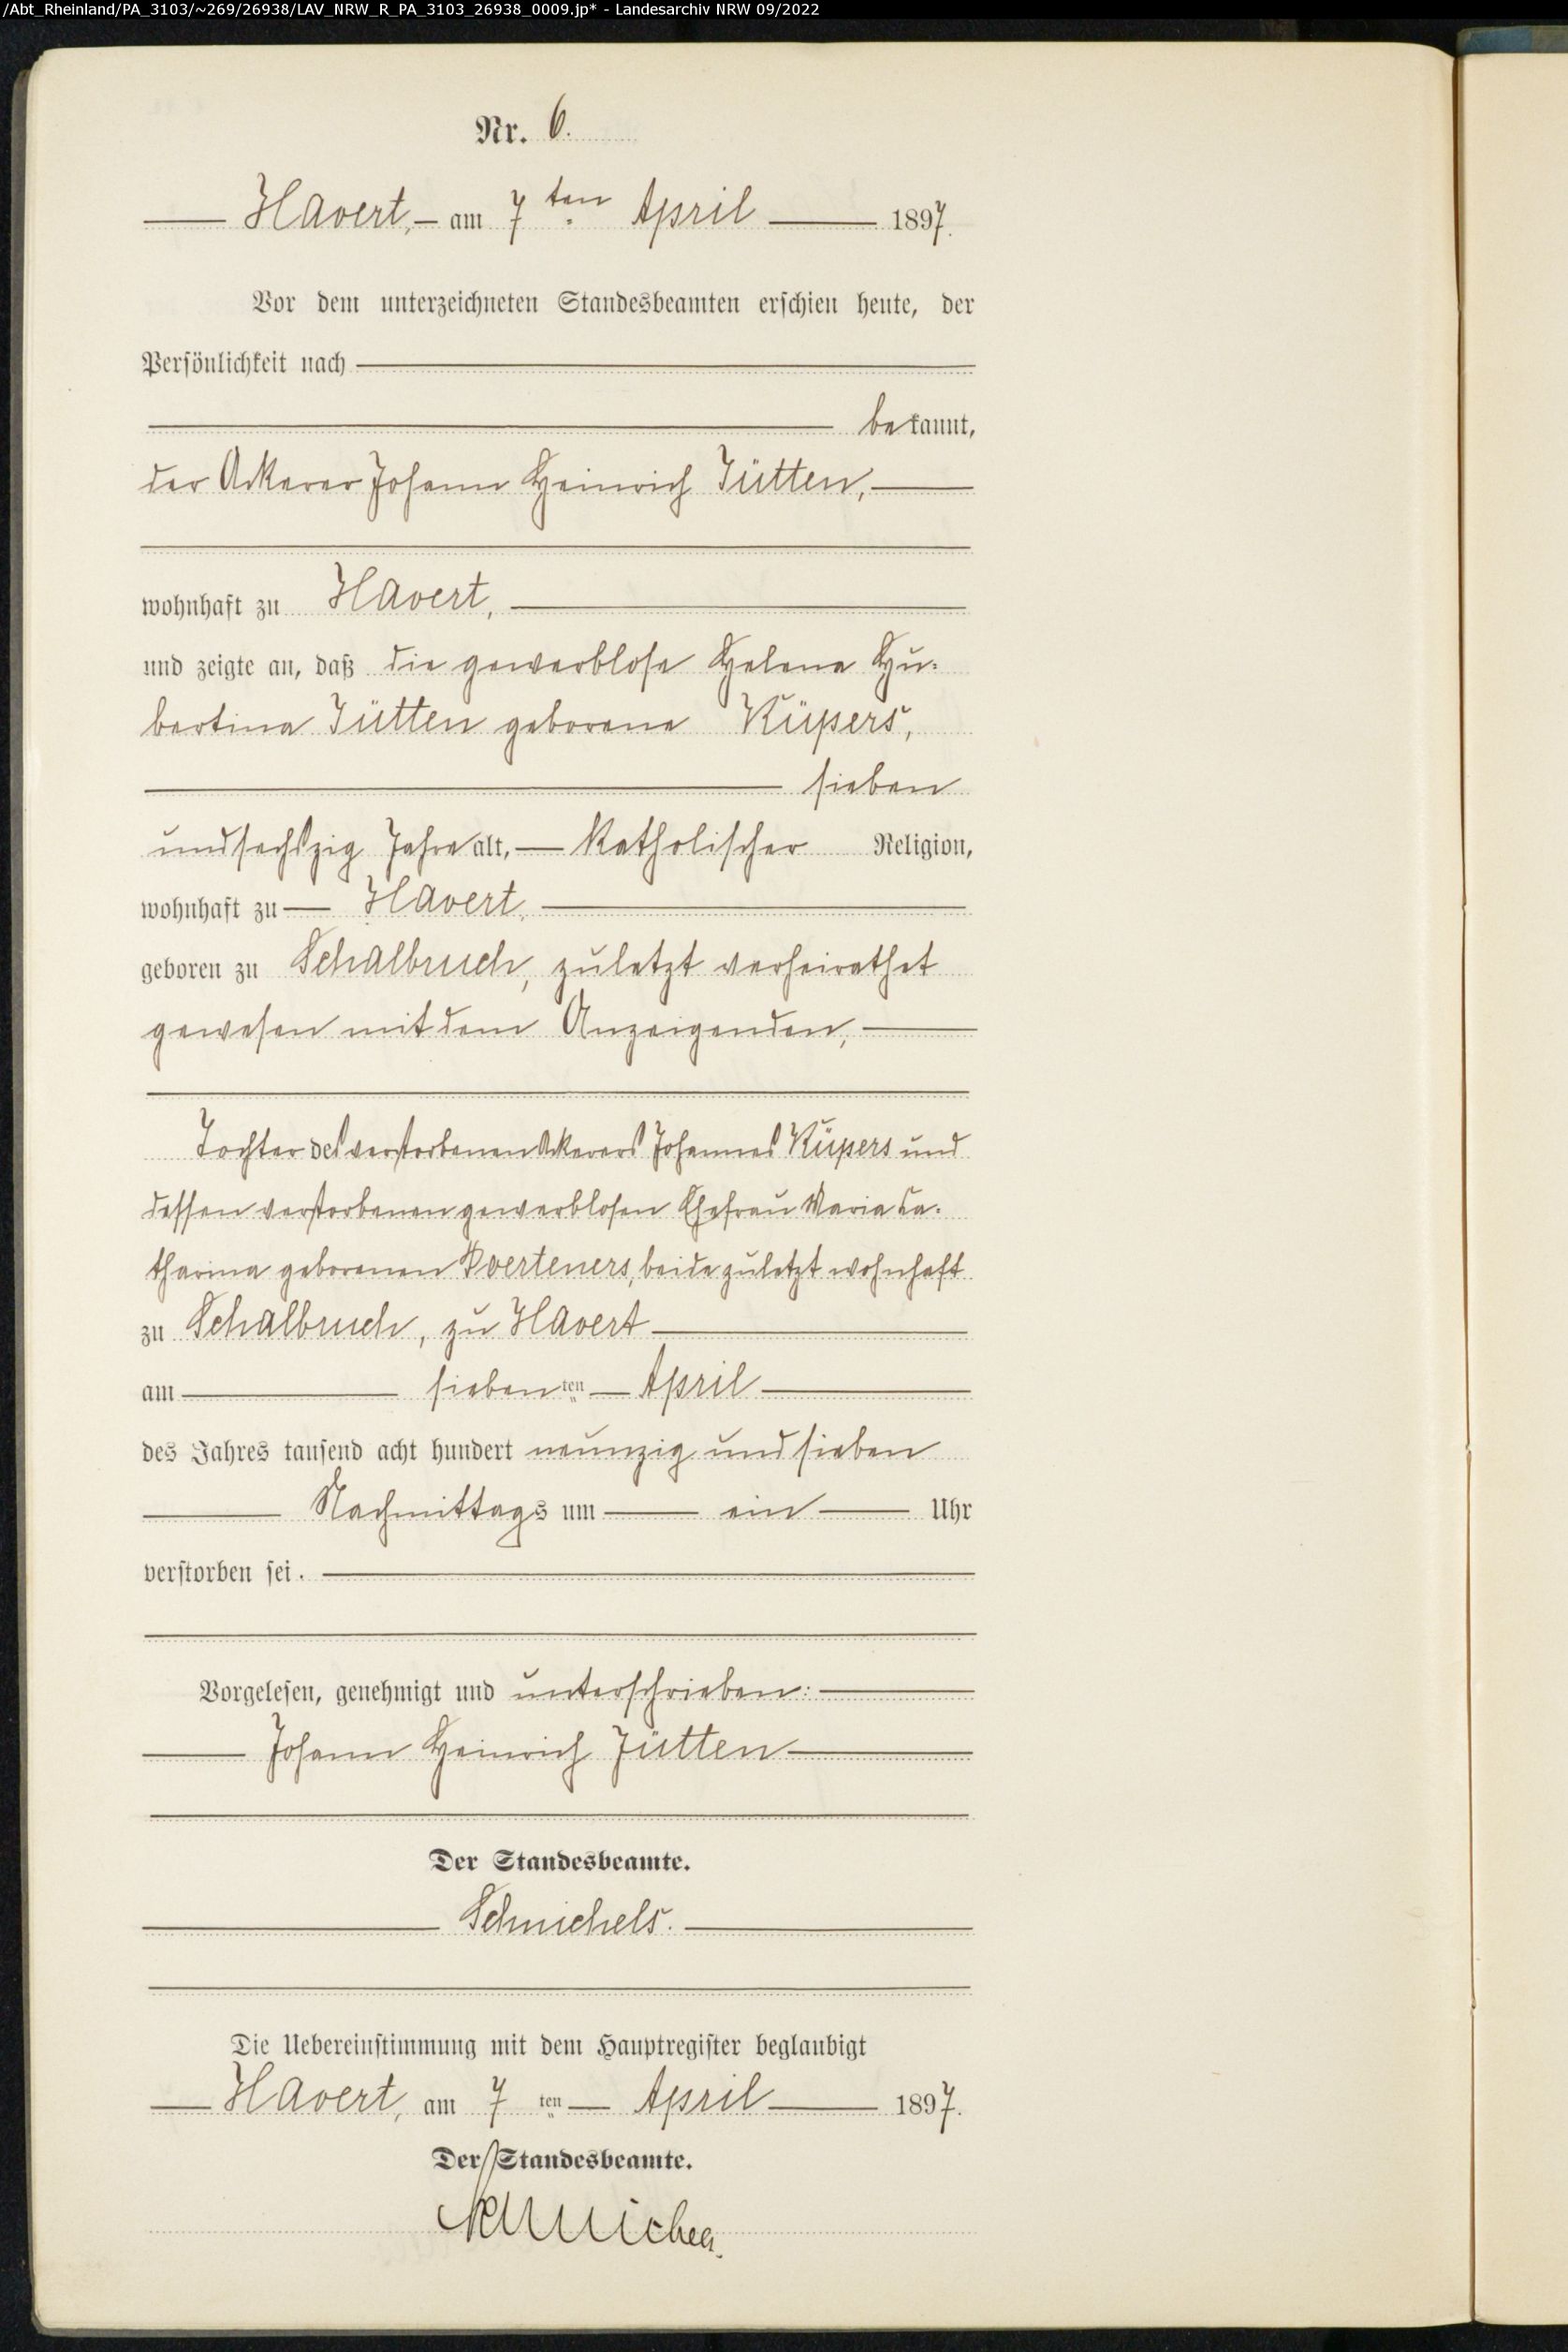 /Abt_Rheinland/PA_3103/~269/26938/LAV_NRW_R_PA_3103_26938_0009.jp* - Landesarchiv NRW 09/2022
Nr. 6.
Havert, am 7ten April 1897.
Vor dem unterzeichneten Standesbeamten erschien heute, der
Persönlichkeit nach
bekannt,
der Ackerer Johann Heinrich Jütten,
wohnhaft zu Havert,
und zeigte an, daß die gewerblose Helena Hu-
bertina Jütten geborene Küpers,
sieben
undsechszig Jahre alt, katholischer Religion,
wohnhaft zu Havert,
geboren zu Schalbruch, zuletzt verheirathet
gewesen mit dem Anzeigenden,
Tochter des verstorbenen Ackerers Johannes Küpers und
dessen verstorbenen gewerblosen Ehefrau Maria Ca-
tharina geborenen beide zuletzt wohnhaft
zu Schalbruch, zu Havert
am siebenten April
des Jahres tausend acht hundert neunzig und sieben
Nachmittags um ein Uhr
verstorben sei.
Vorgelesen, genehmigt und unterschrieben:
Johann Heinrich Jütten
Der Standesbeamte.
Schmichels.
Die Uebereinstimmung mit dem Hauptregister beglaubigt
Havert, am 7ten April 1897.
Der Standesbeamte.